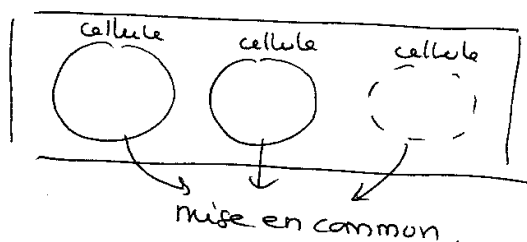 cellule cellule cellule
mise en common.